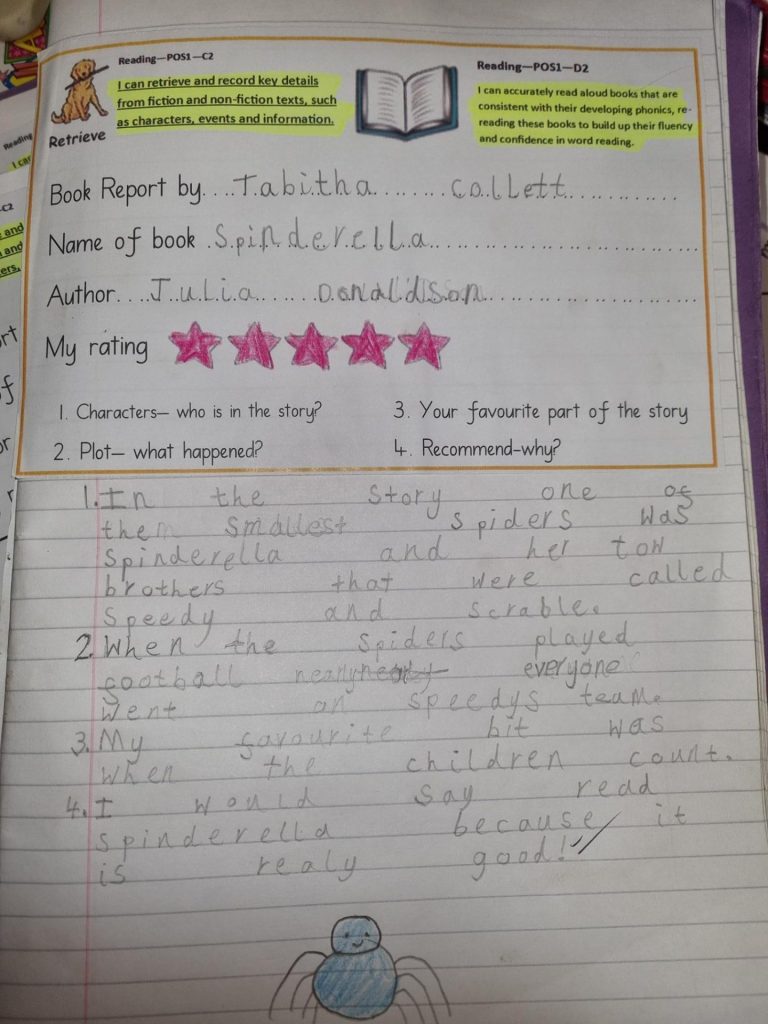 Reading—POS1—C2
I can retrieve and record key details
from fiction and non-fiction texts, such
as characters, events and information.
Retrieve
Reading—POS1—D2
I can accurately read aloud books that are
consistent with their developing phonics, re-
reading these books to build up their fluency
and confidence in word reading.
Book Report by....Tabitha.......collett...........
Name of book .Spinderella...........................
Author....Julia......Donaldson......................
My rating
1. Characters— who is in the story?
2. Plot— what happened?
3. Your favourite part of the story
4. Recommend-why?
1. In the story one of
them smallest spiders was
Spinderella and her tow
brothers that were called
Speedy and scrable.
2. When the spiders played
football nearly everyone
went on speedys team.
3. My favourite bit was
when the children count.
4. I would say read
spinderella because it
is realy good!